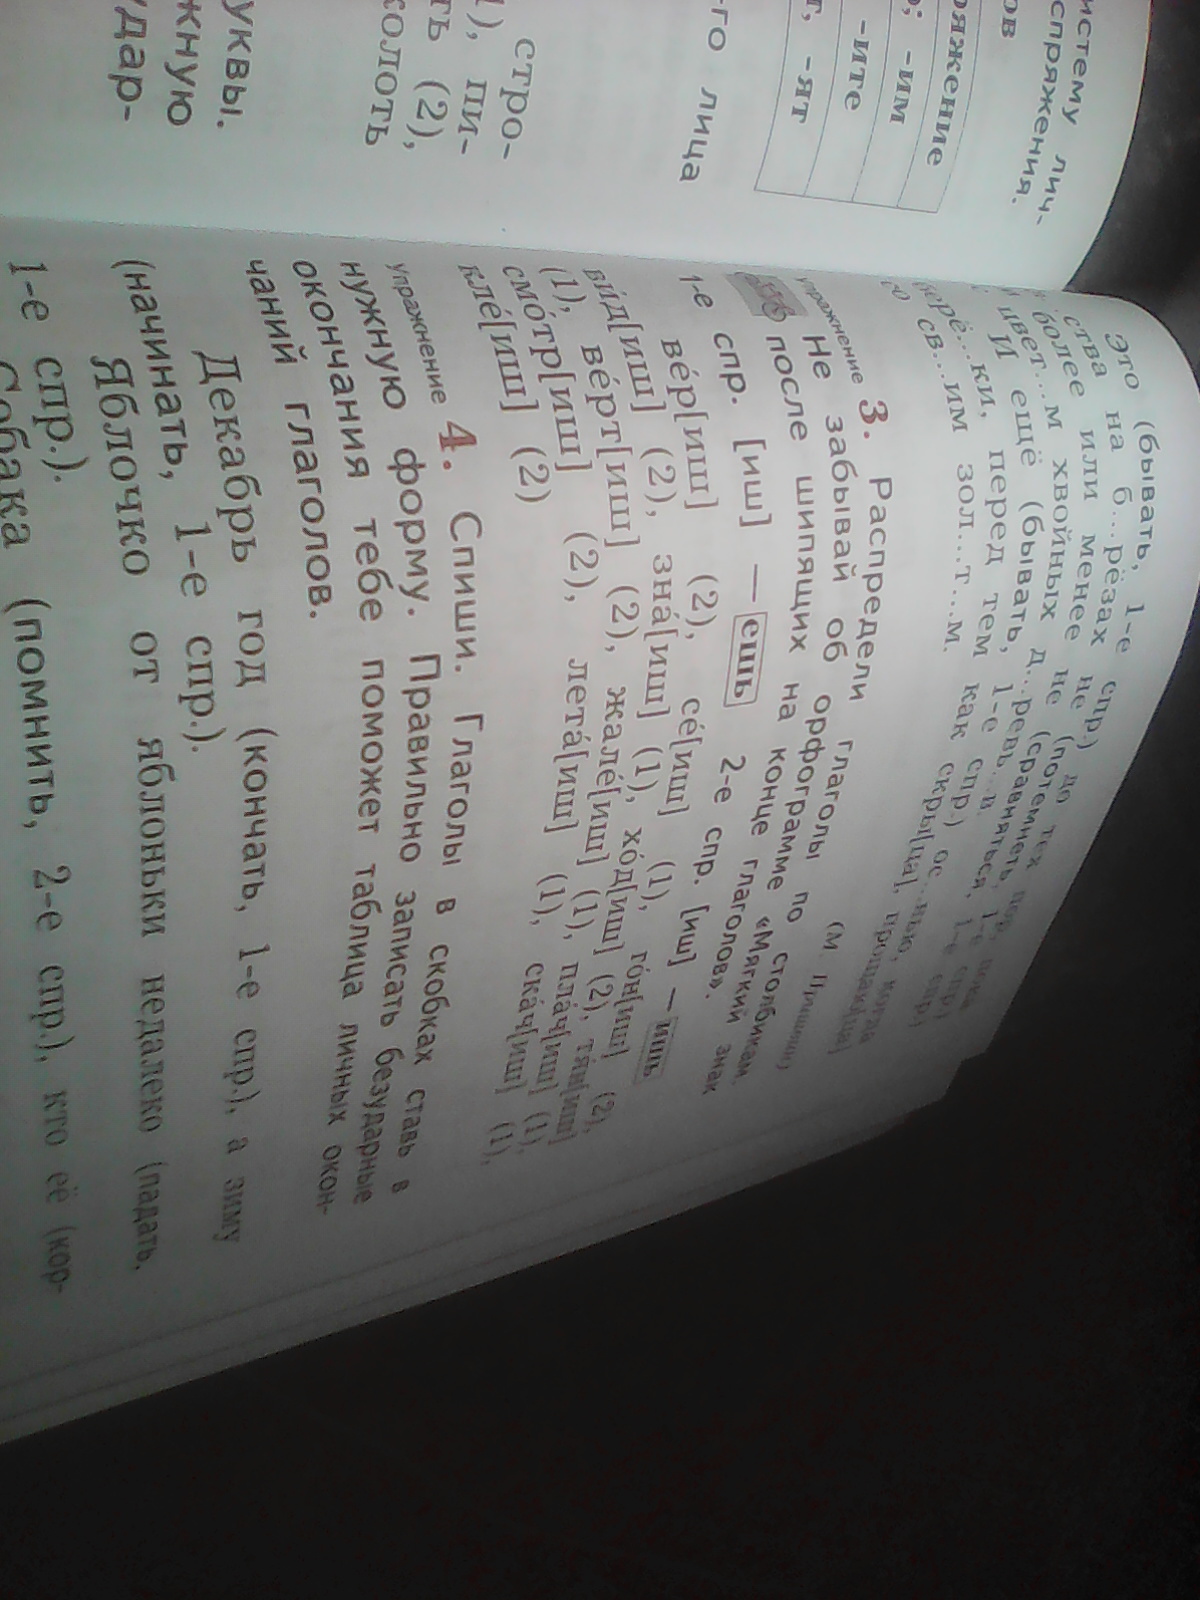 истему лич-
спряжения.
ов
ряжение
; -им
-ите
т, -ят
-го лица
стро-
), пи-
ть (2),
колоть
уквы.
жную
удар-
Это (бывать, 1-е спр.) до тех пор, пока
на б...рёзах не (потемнеть, 1-е спр.)
ства или менее не (сравняться, 1-е спр.)
более хвойных д...ревь...в.
цвет...м
И ещё (бывать, 1-е спр.) ос...нью, когда
перед тем как скры[ца], прощаю[ца]
св...им зол...т...м.
(М. Пришвин)
упражнение 3. Распредели глаголы по столбикам.
Не забывай об орфограмме «Мягкий знак
после шипящих на конце глаголов».
1-е спр. [иш] — ешь 2-е спр. [иш] — ишь
ве́р[иш] (2), се́[иш] (1), го́н[иш] (2),
ви́д[иш] (2), зна́[иш] (1), хо́д[иш] (2), тя́н[иш]
(1), ве́рт[иш] (2), жале́[иш] (1), пла́ч[иш] (1),
смо́тр[иш] (2), лета́[иш] (1), ска́ч[иш] (1),
кле́[иш] (2)
упражнение 4. Спиши. Глаголы в скобках ставь в
нужную форму. Правильно записать безударные
окончания тебе поможет таблица личных окон-
чаний глаголов.
Декабрь год (кончать, 1-е спр.), а зиму
(начинать, 1-е спр.).
Яблочко от яблоньки недалеко (падать,
1-е спр.).
Собака (помнить, 2-е спр.), кто её (кор-